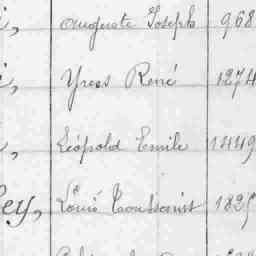 i, Auguste Joseph 968
i, Yves René 1274
, Léopold Emile 1449
ey, Louis Toussaint 1825